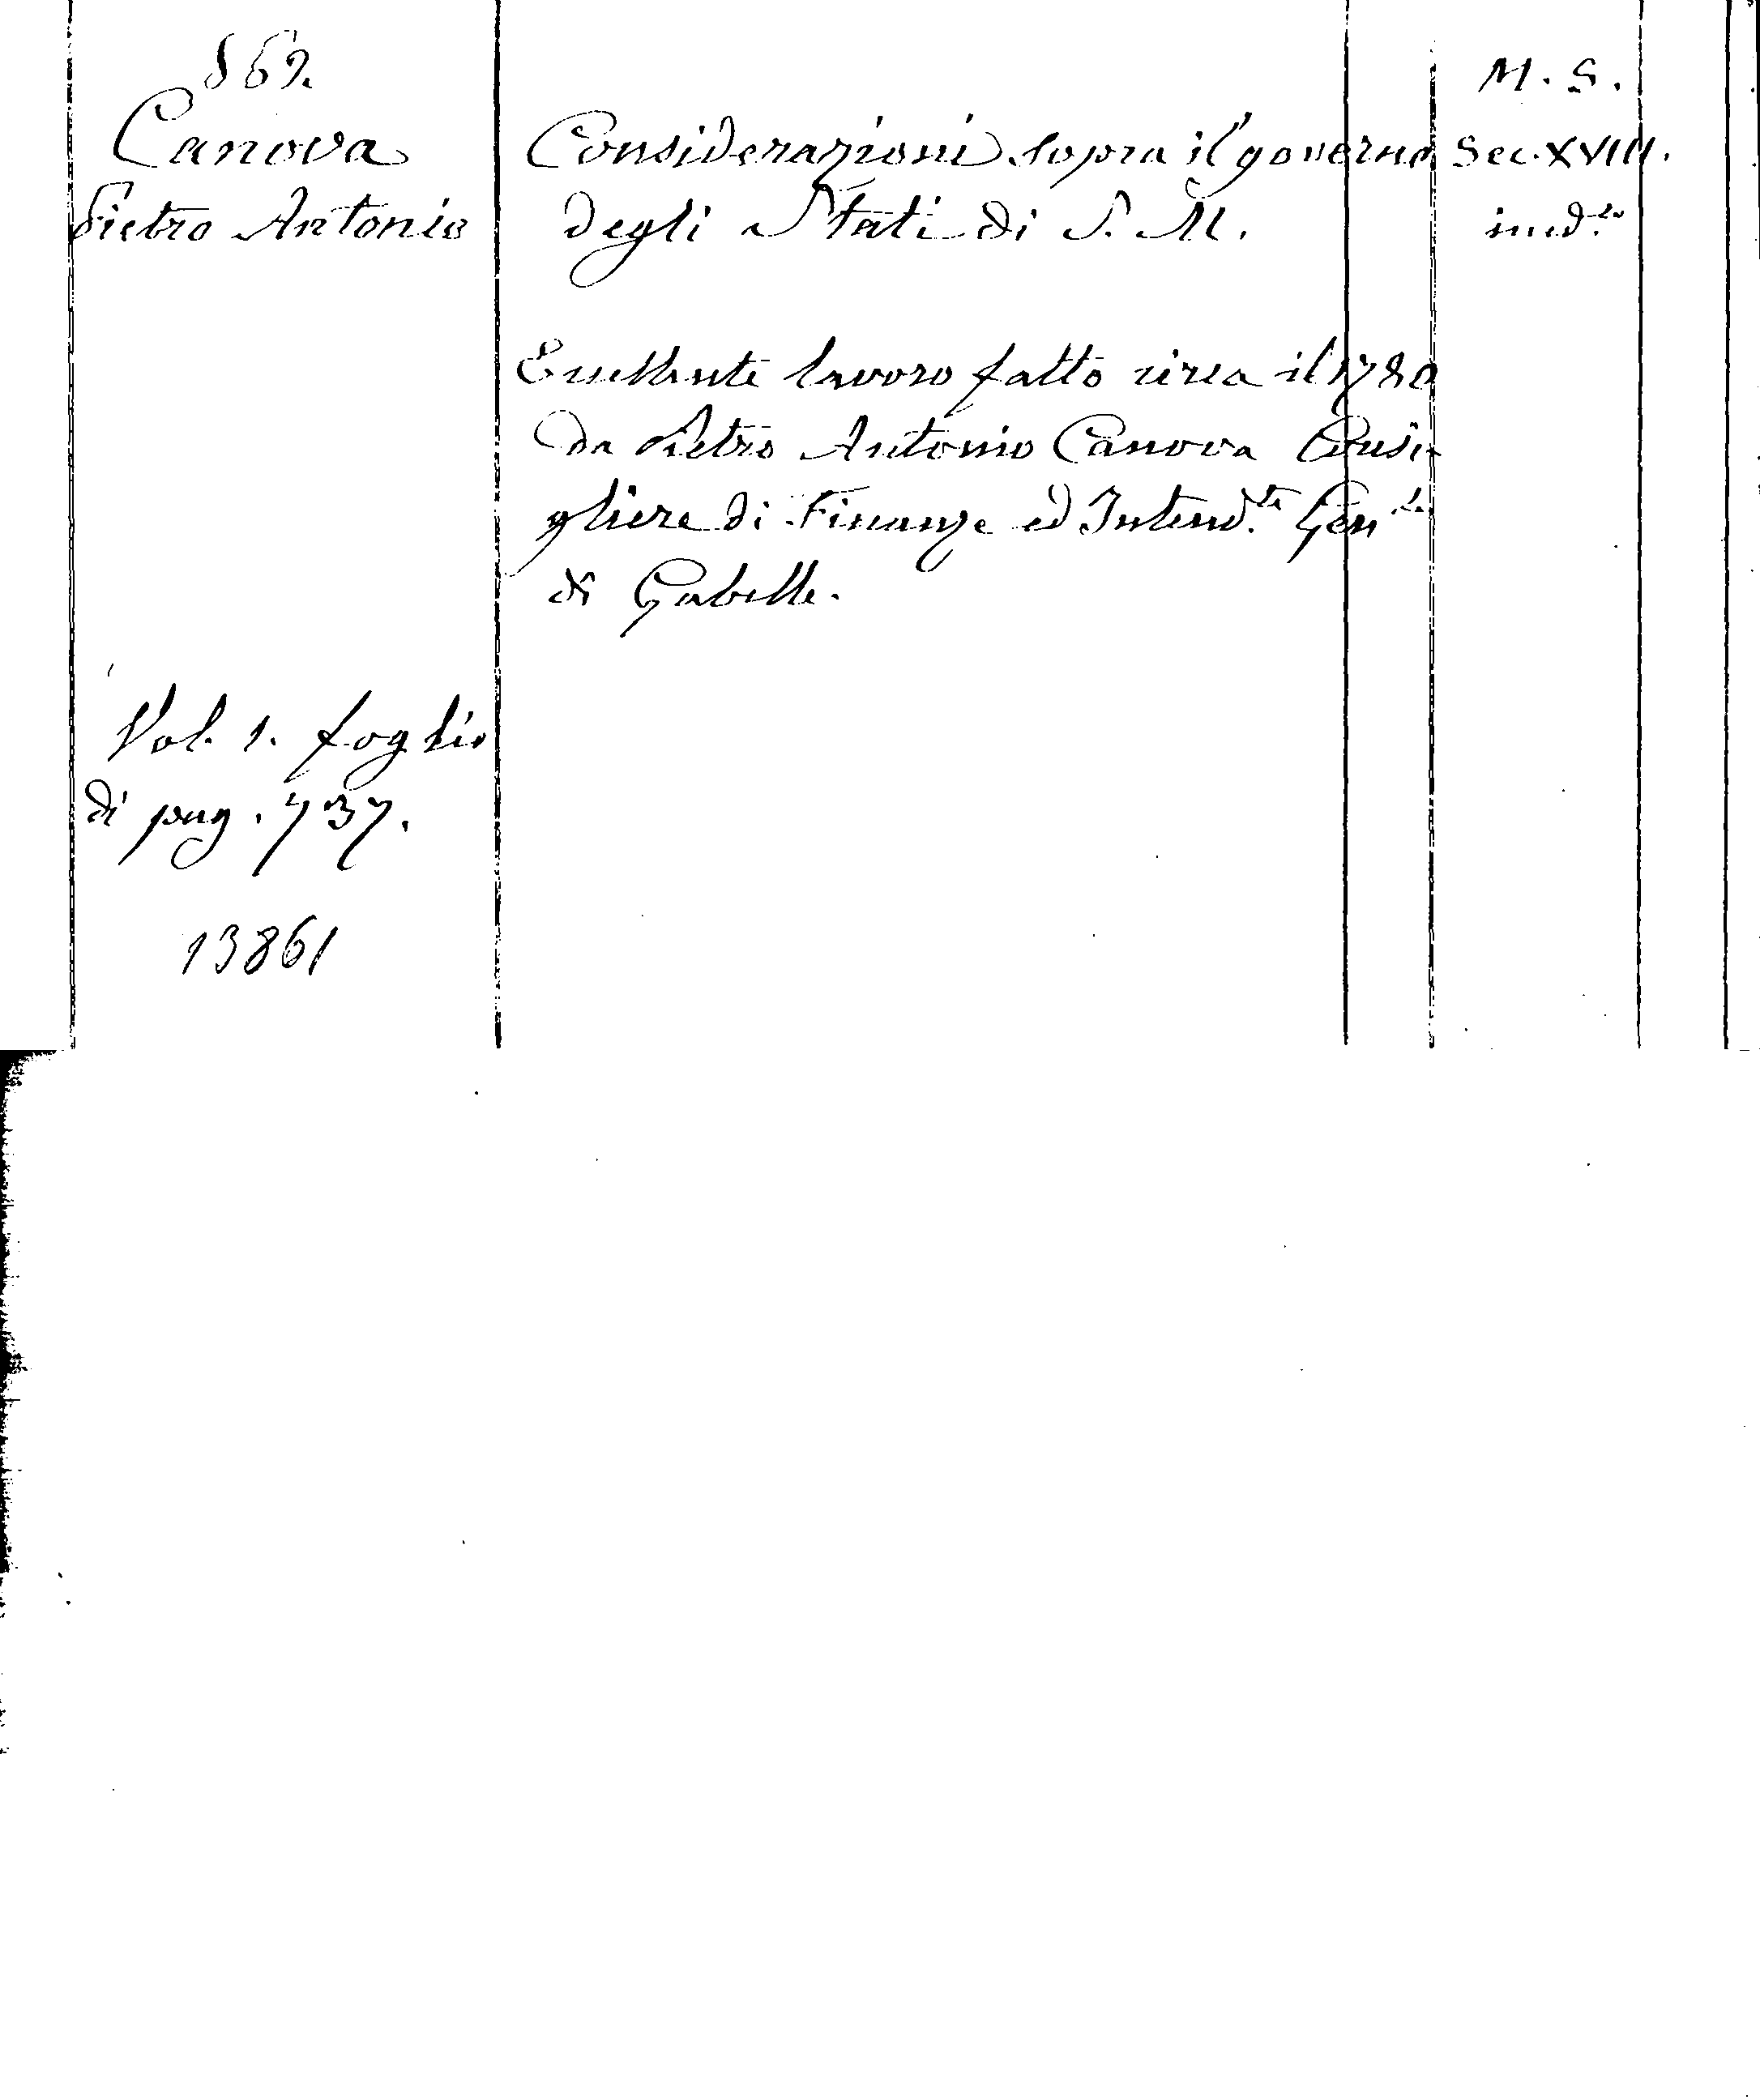 869.
Canova
Pietro Antonio
Considerazioni sopra il governo
degli Stati di S. M.
M. S.
Sec. XVIII.
ined.to
Eccellente lavoro fatto circa il 1780
da Pietro Antonio Canova Consi-
gliere di Finanze ed Intend.te Gen.le
di Gabelle.
Vol. 1. foglio
di pag. 737.
13861